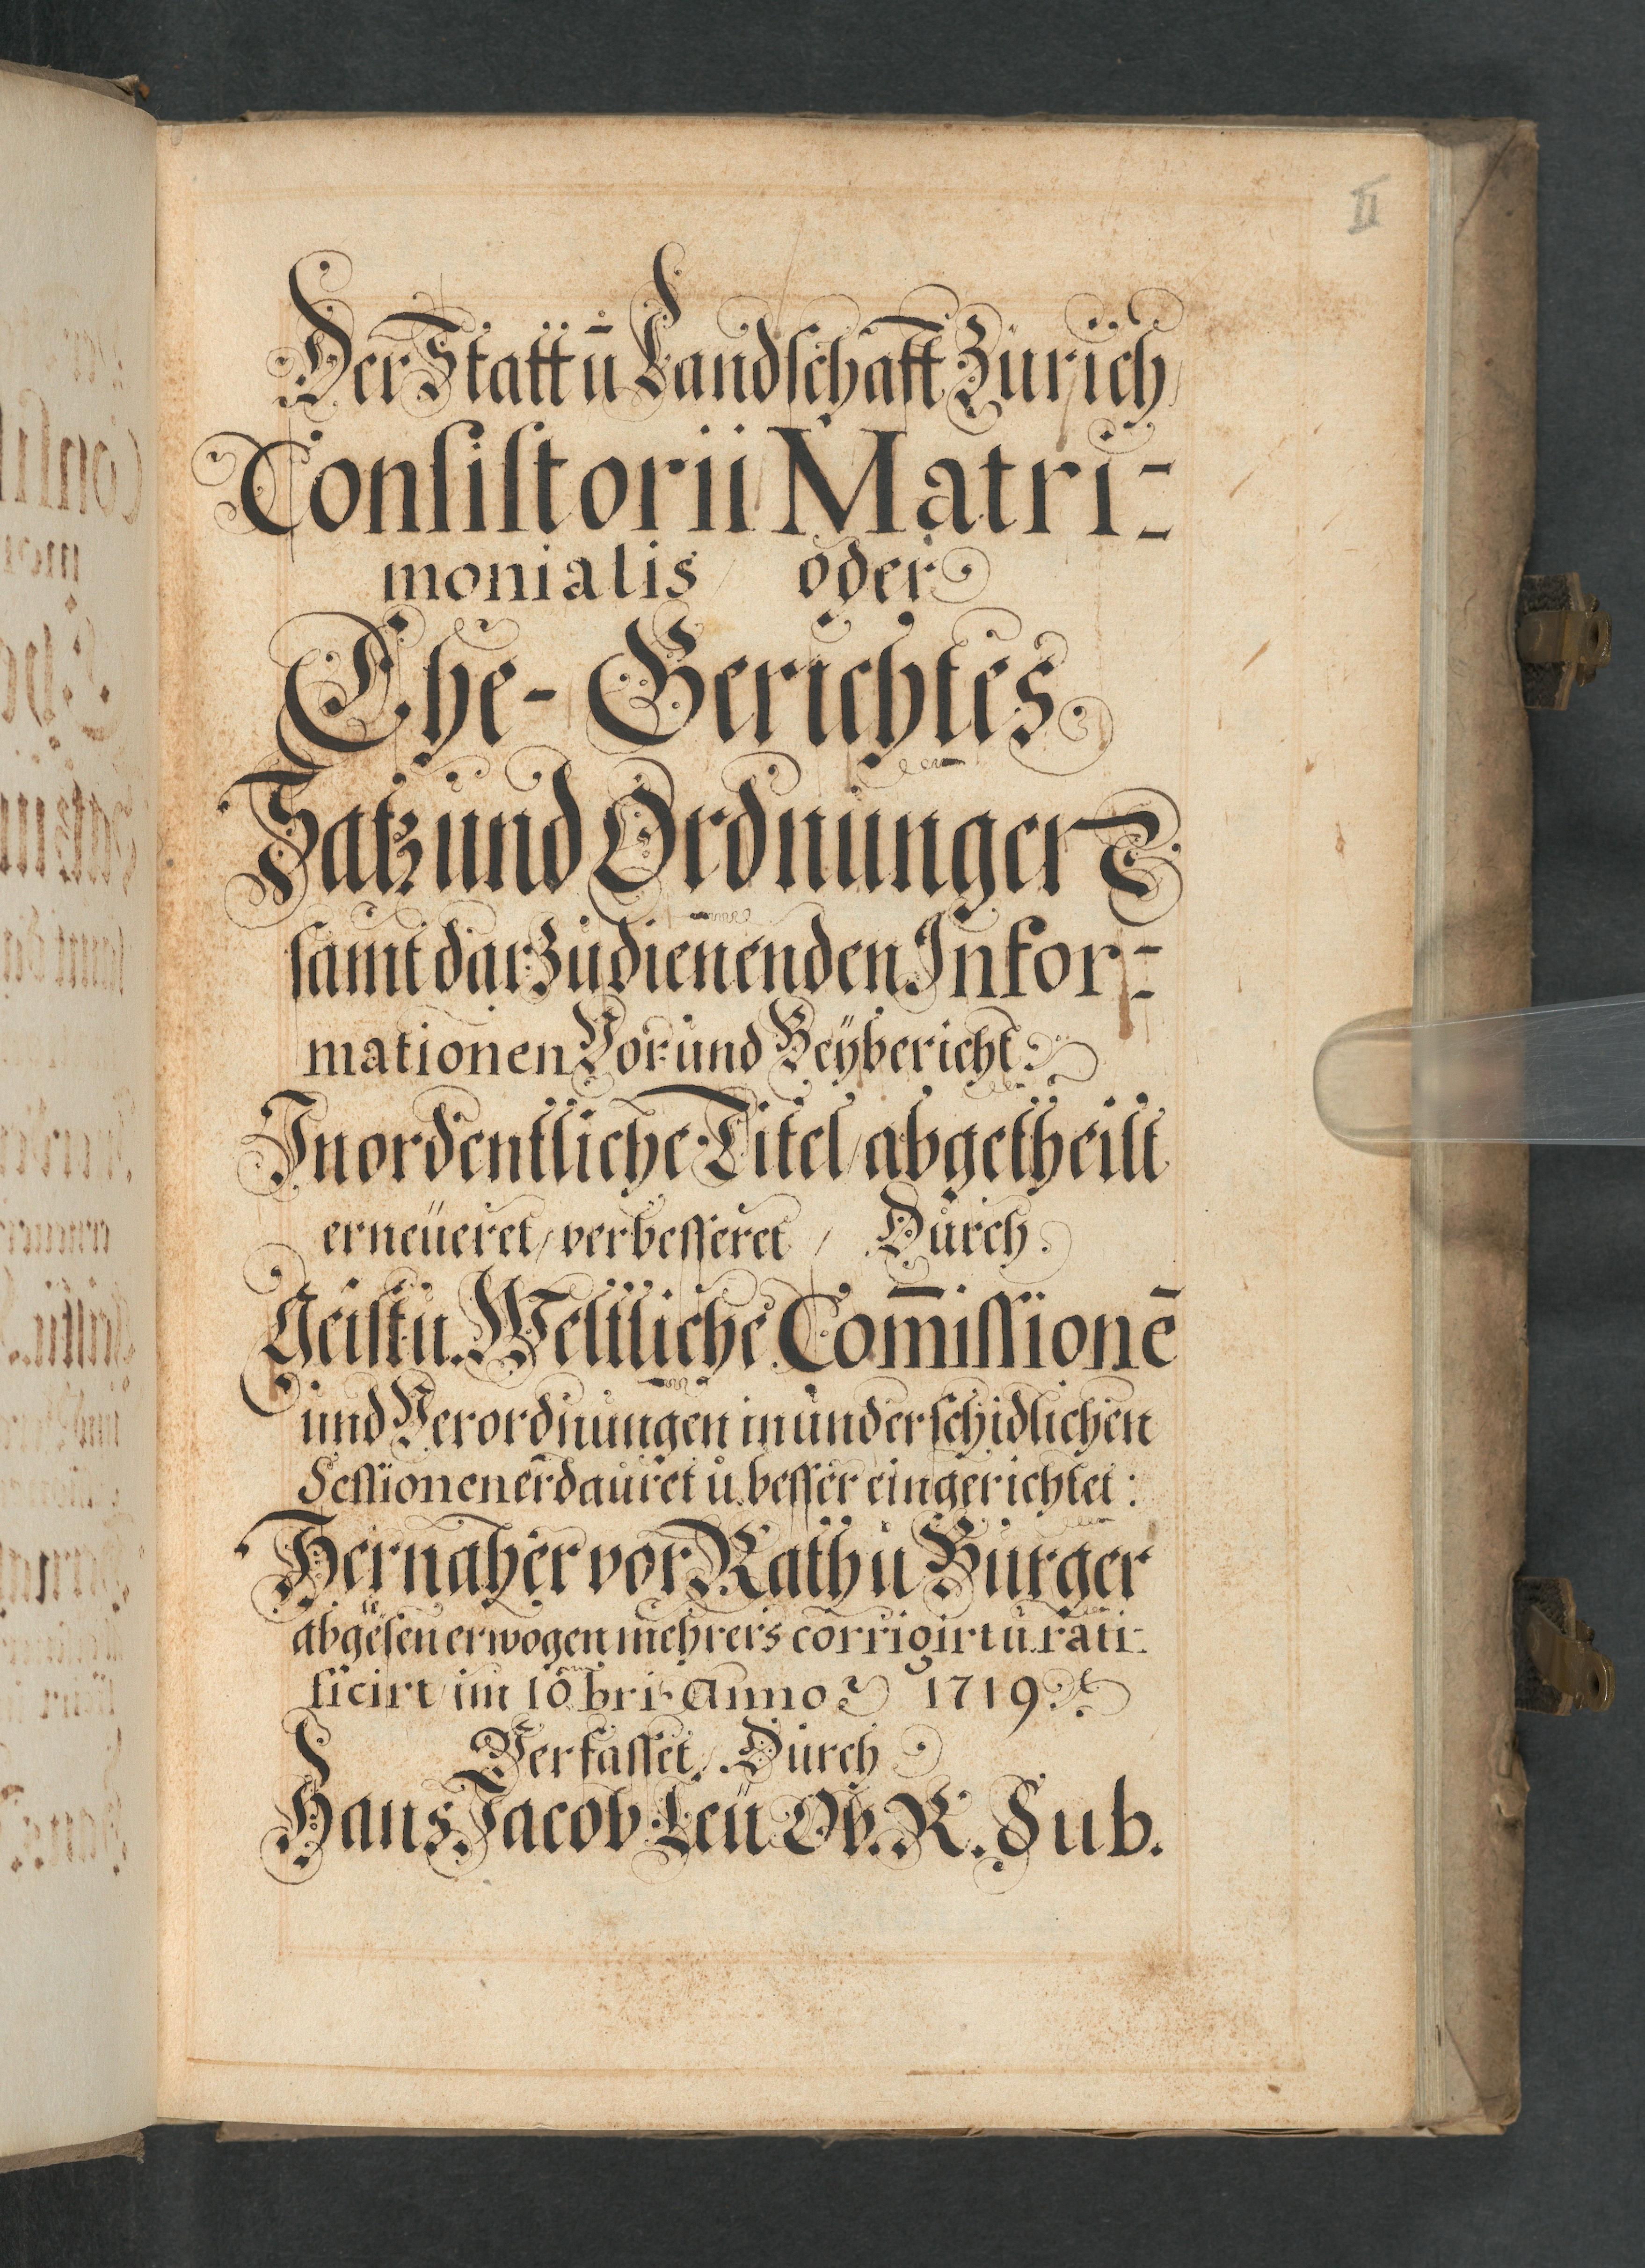 II
Der Statt ū Landschafft Zürich
Consistorii Matri-
monialis / oder
Ehe-Gerichtes
Satz und Ordnungen
samt darzu dienenden Infor-
mationen Vor- und Beybericht
In ordentliche Titel / abgetheilt
erneüeret / verbesseret / Durch
Geist. u. Weltliche Com̄issionē
und Verordnungen in underschidlichen
Sessionen erdauret u. besser eingerichtet:
Hernaher vor Räth u Burger
abgelesen erwogen mehrers corrigirt u. rati-
ficirt im 10bri. Anno 1719
Verfasset / Durch
Hans Jacob Leü Ob. R. Sub.